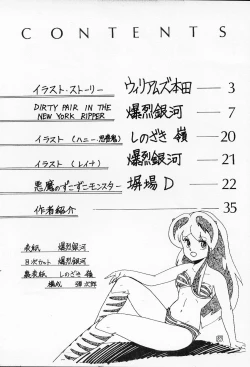 CONTENTS
イラスト・ストーリー ウィリアムズ本田 — 3
DIRTY PAIR IN THE
NEW YORK RIPPER 爆烈銀河 — 7
イラスト (ハニー・悪魔) しのざき 嶺 — 20
イラスト (レイナ) 爆烈銀河 — 21
悪魔のずこずこモンスター 塀場 D — 22
作者紹介 — 35
表紙 爆烈銀河
目次カット 爆烈銀河
裏表紙 しのざき 嶺
構成